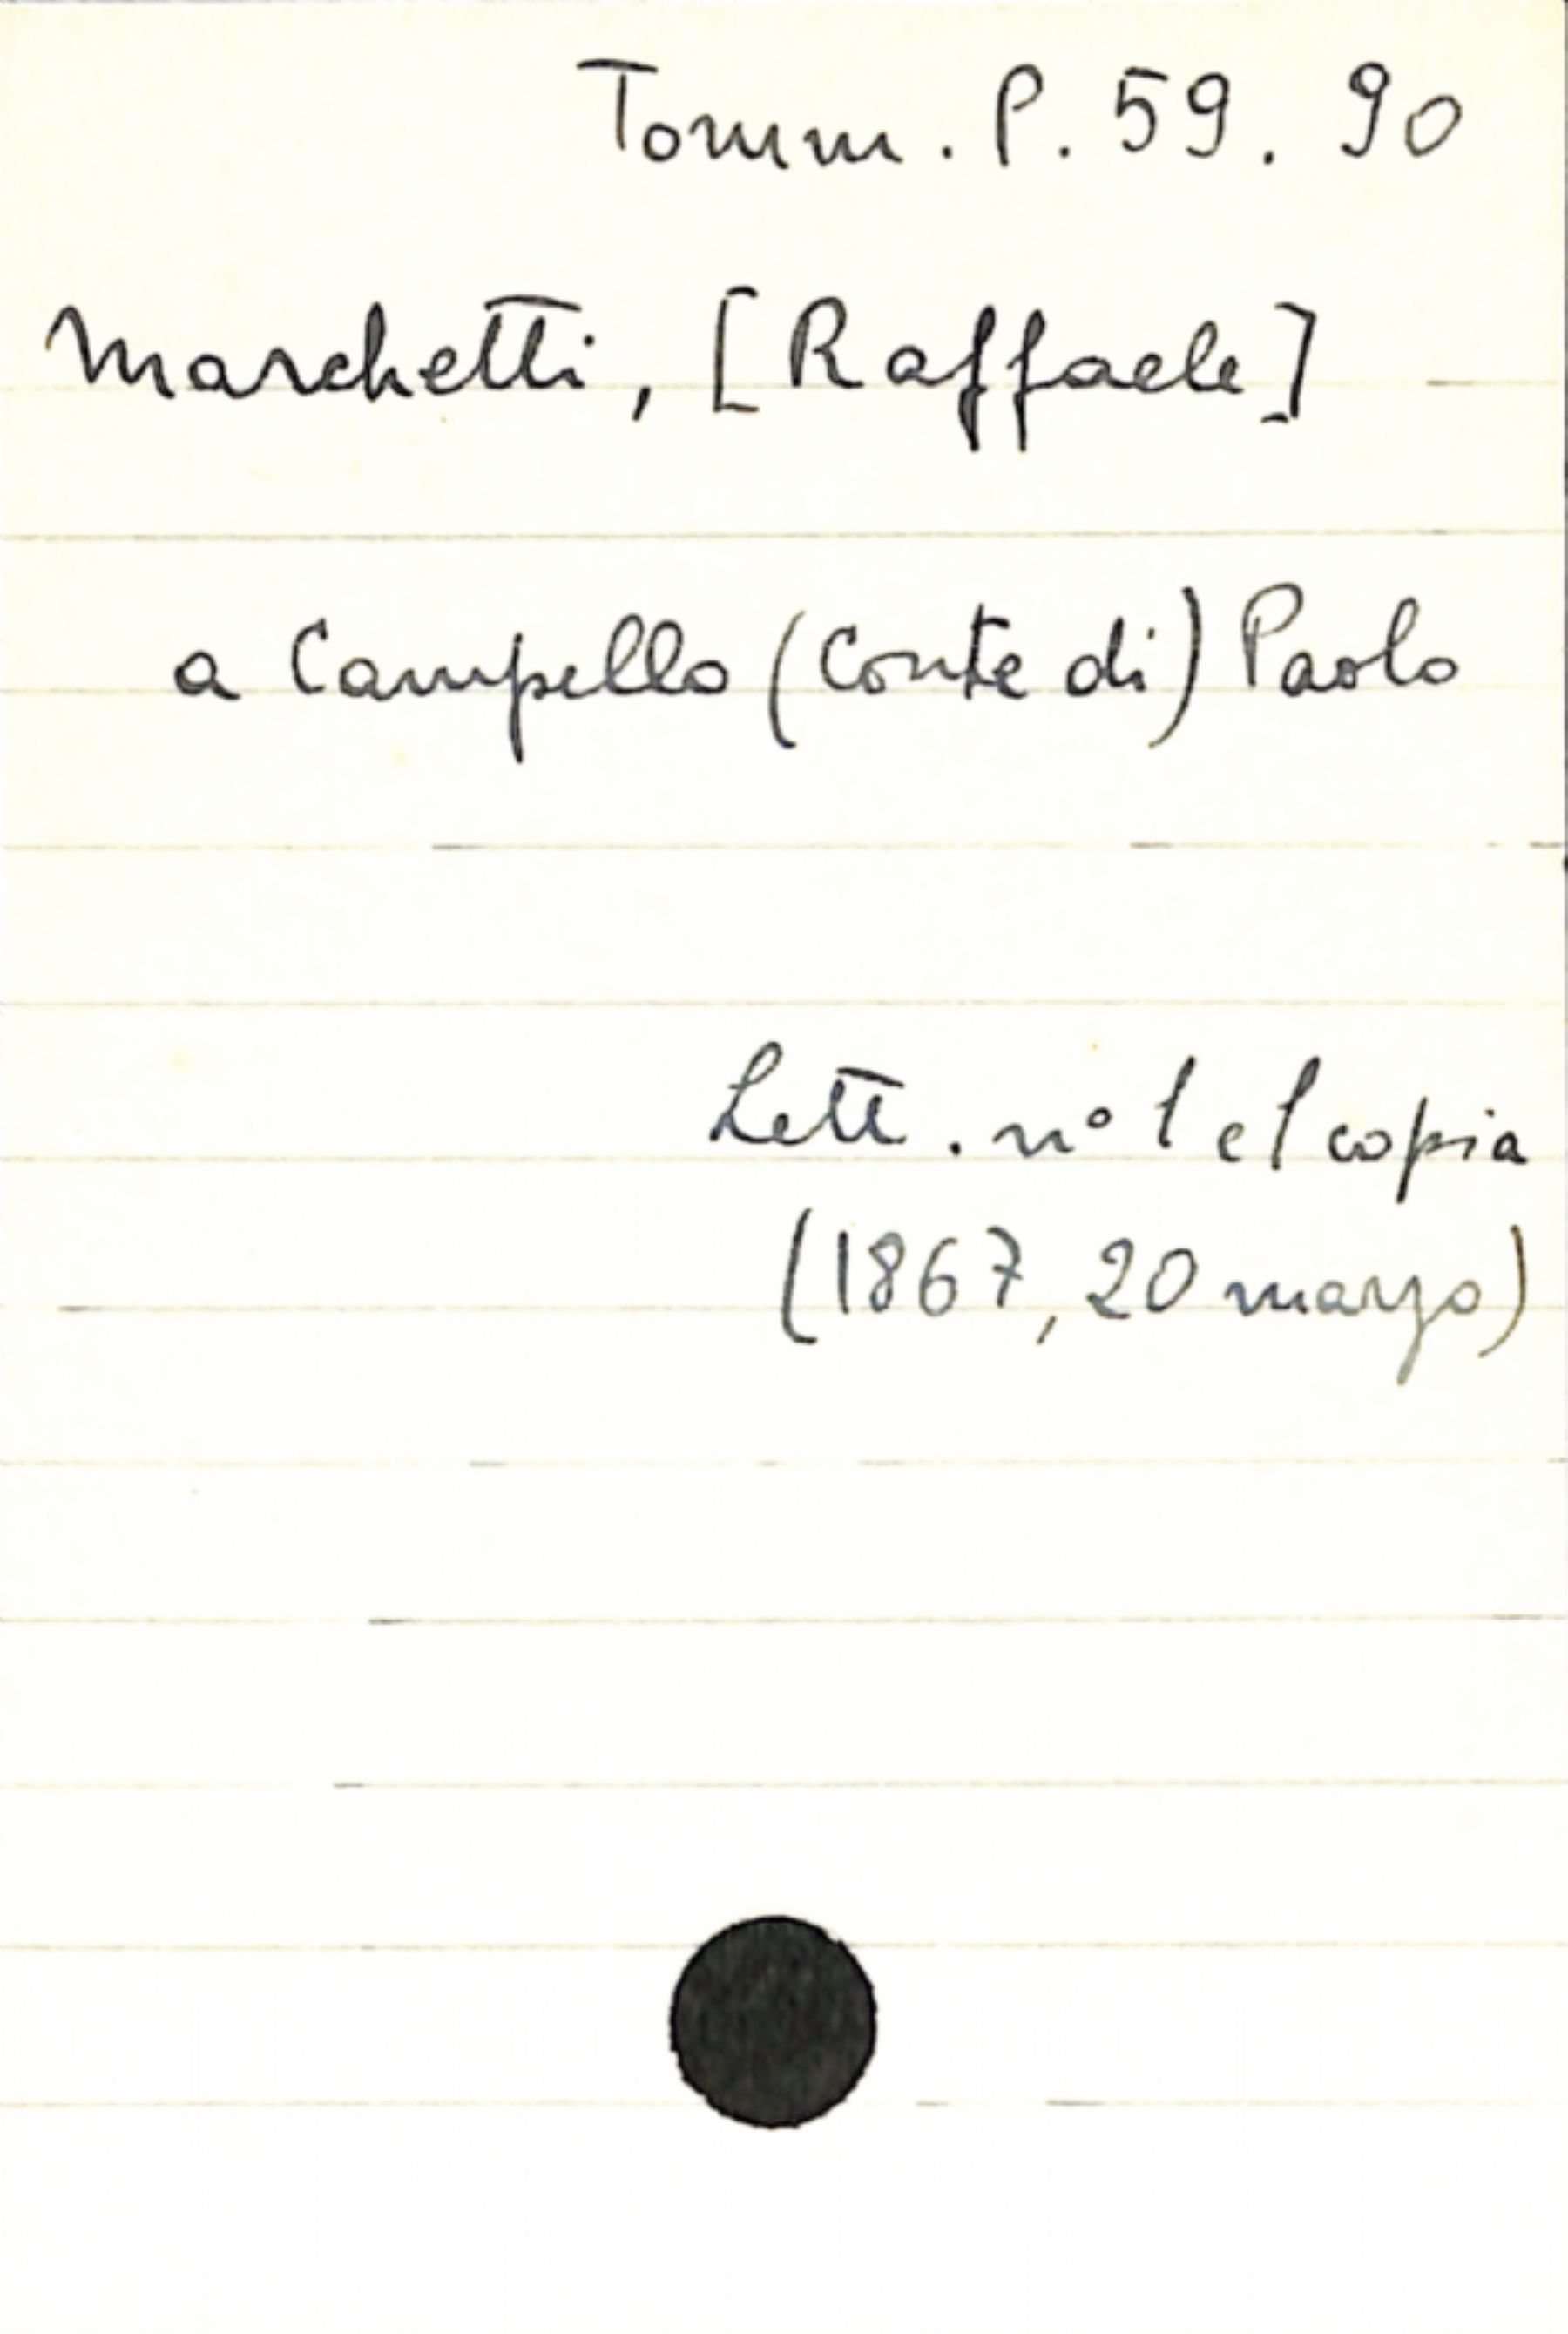 Tomm. P. 59. 90
Marchetti, [Raffaele]
a Campello (Conte di) Paolo
Lett. n° 1 e 1 copia
(1867, 20 marzo)